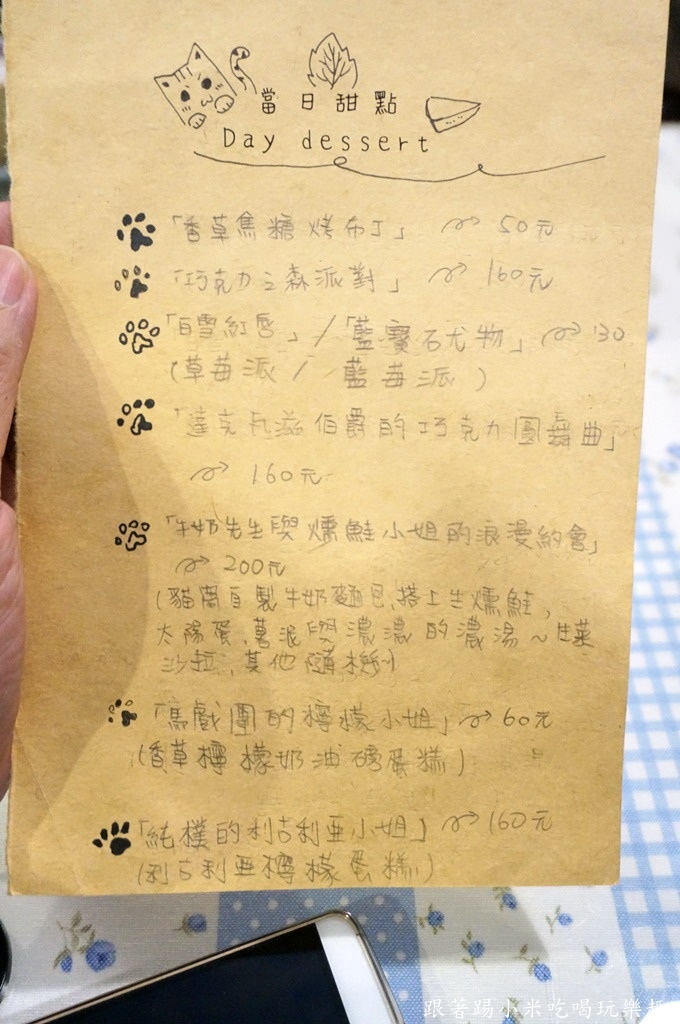 當日甜點
Day dessert
「香草焦糖烤布丁」 50元
「巧克力之森派對」 160元
「白雪紅唇」/「藍寶石尤物」 130
(草莓派 / 藍莓派)
「達克瓦滋伯爵的巧克力圓舞曲」
160元
「牛奶先生與燻鮭小姐的浪漫約會」
200元
(貓窩自製牛奶麵包,搭上生燻鮭,
太陽蛋,薯泥與濃濃的濃湯~生菜
沙拉,其他隨機)
「馬戲團的檸檬小姐」 60元
(香草檸檬奶油磅蛋糕)
「純樸的利古利亞小姐」 160元
(利古利亞檸檬蛋糕)
跟著踢小米吃喝玩樂趣